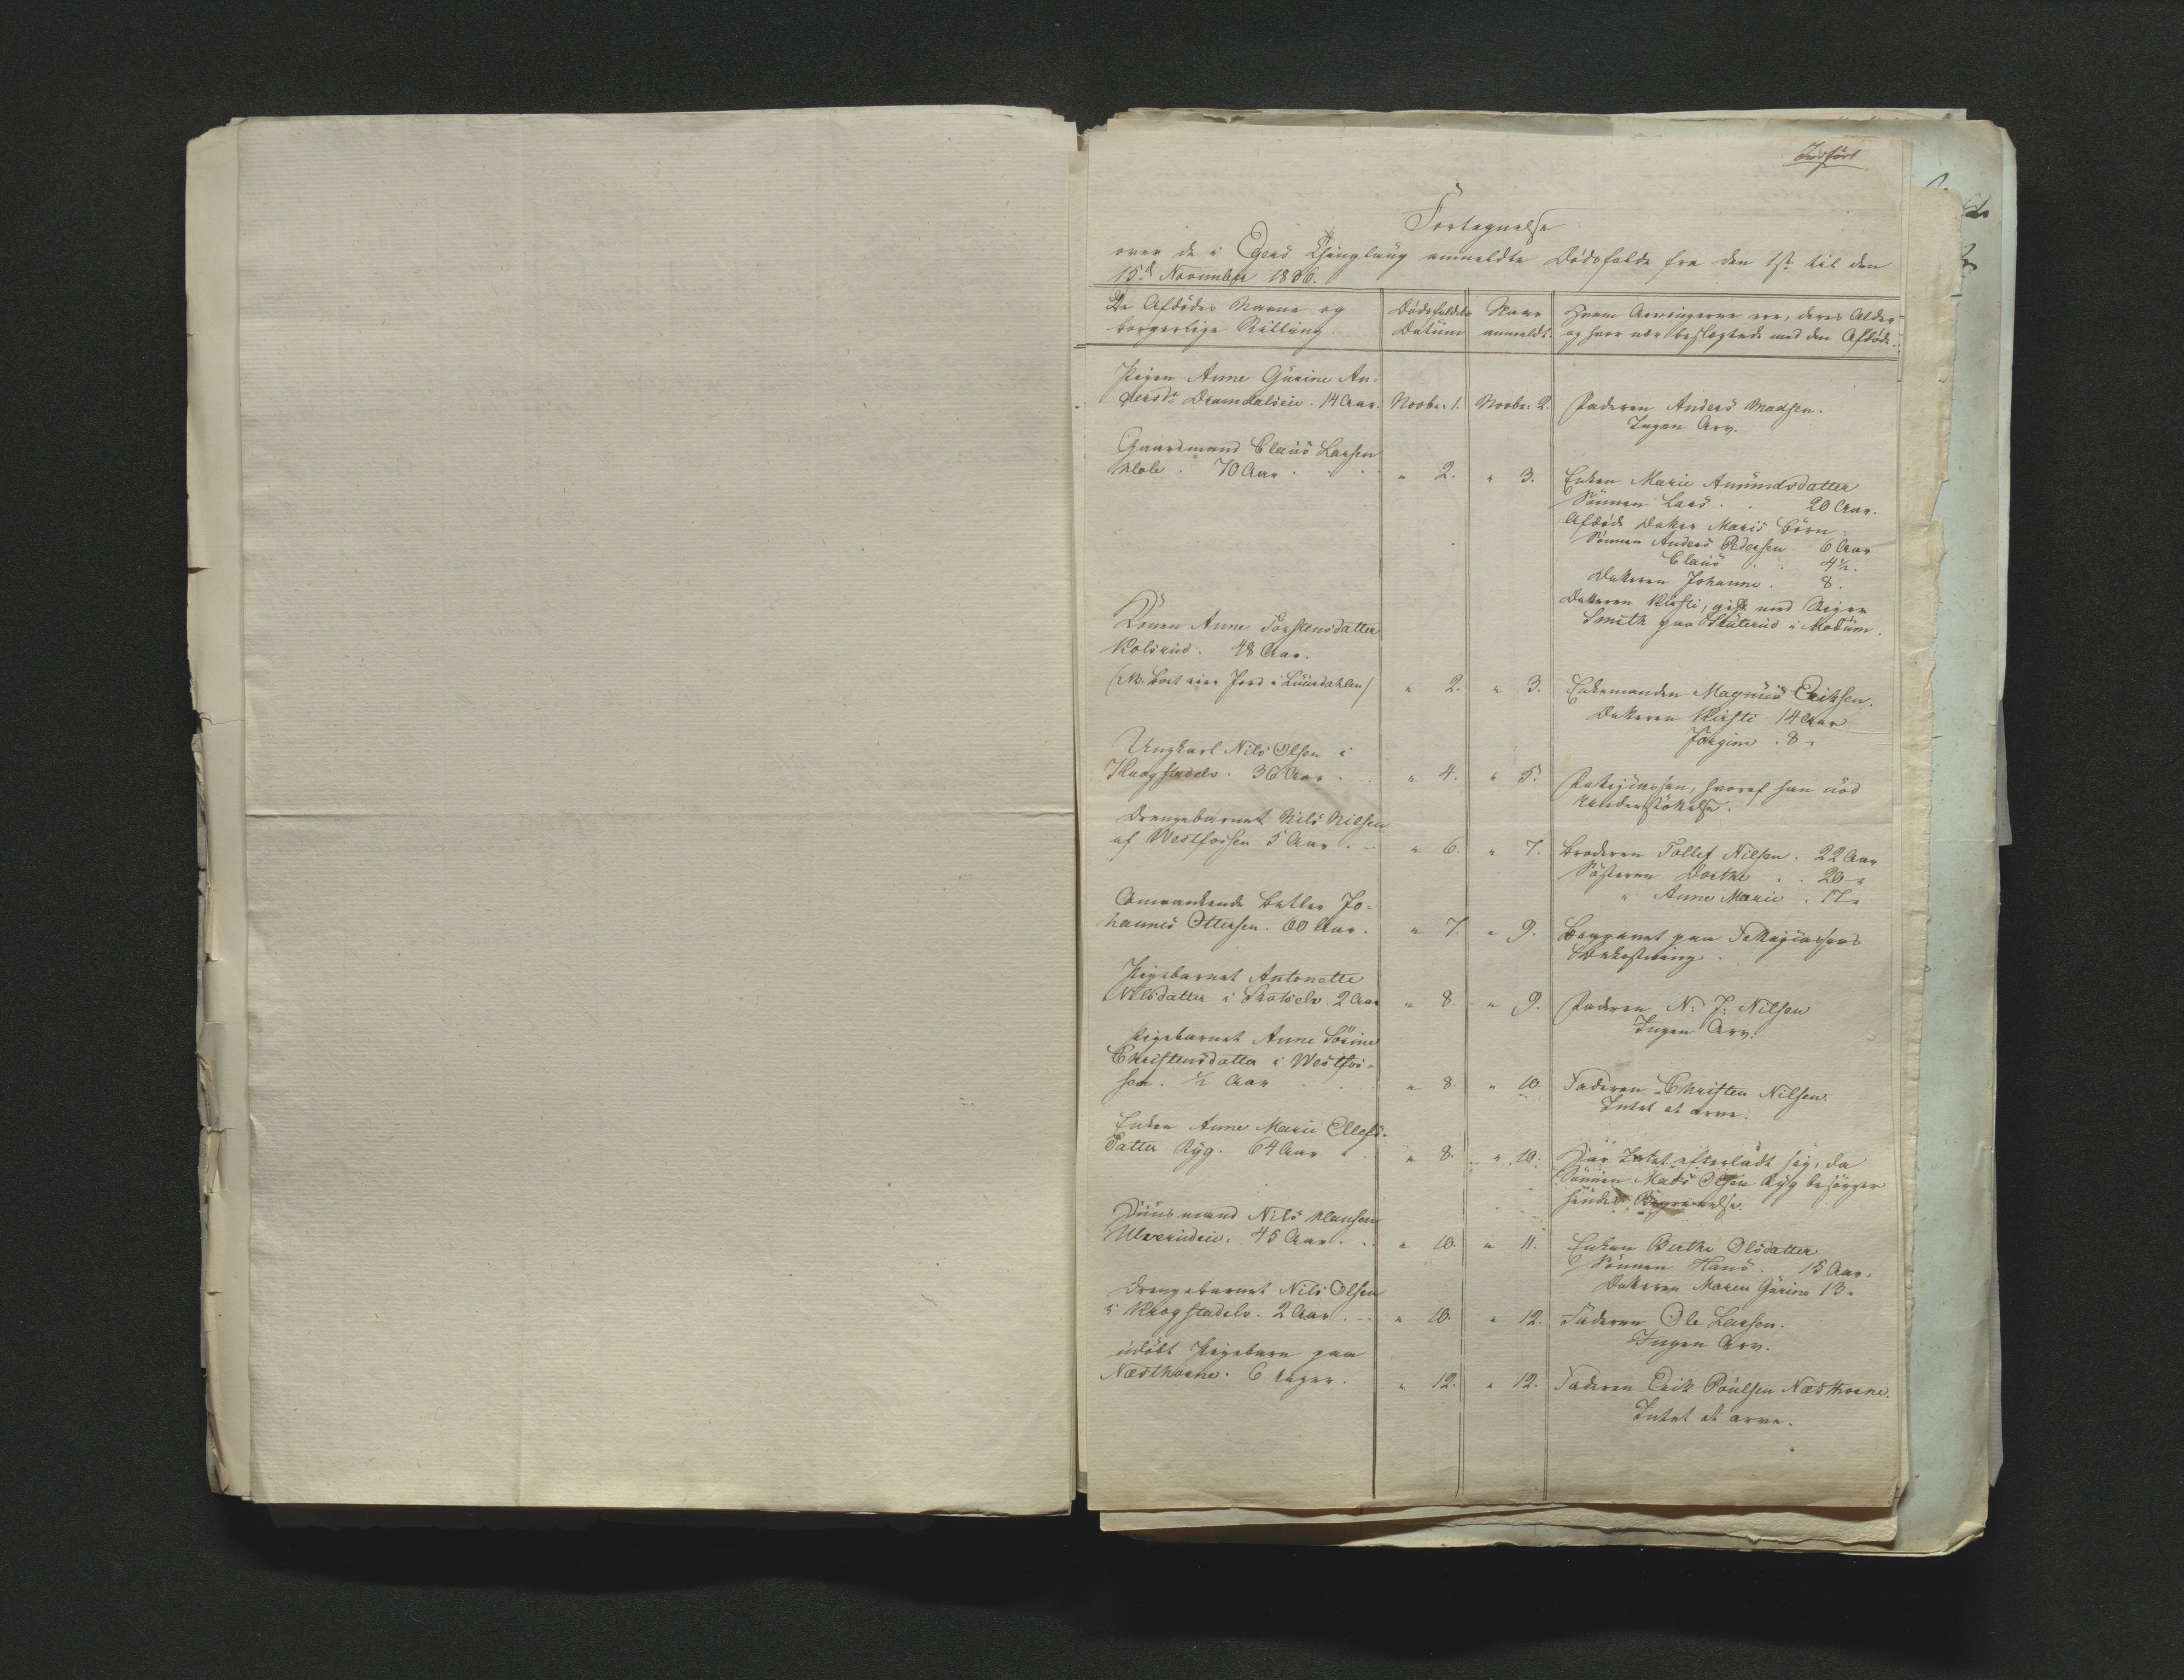 Indført
Fortegnelse
over de i Egers Thinglaug anmeldte Dødsfalde fra den 1ste til den
15d November 1836.
De Afdødes Navne og
borgerlige Stilling
Dødsfaldets
Datum
Naar
anmeldt.
Hvem Arvingerne ere, deres Alder
og hvor nær beslægtede med den Afdøde.
Pigen Anne Gurine An-
dersdr Dramdalseie. 14 Aar. Novbr: 1. Novbr: 2. Faderen Anders Madsen.
Ingen Arv.
Gaardmand Claus Larsen
Hole. 70 Aar " 2. " 3. Enken Marie Amundsdatter
Sönnen Lars. 20 Aar.
Afdöde Datter Maris Börn:
Sönnen Anders Pedersen. 6 Aar
Claus 4½.
Datteren Johanne. 8.
Datteren Kirsti, gift med
Smith paa Skuterud i Modum.
Konen Anne Torstensdatter
Kolsrud. 48 Aar.
(NB. bort eier Jord i Lüürdahlen) " 2. " 3. Enkemanden Magnus Eriksen.
Datteren Kirsti 14 Aar
Jörgine 8 "
Ungkarl Nils Olsen i
Krogstadelv. 36 Aar. " 4. " 5. Fattigkassen, hvoraf han nöd
Understöttelse.
Drengebarnet Nils Nilsen
af Westfossen 5 Aar. " 6. " 7. Broderen Tollef Nilsen. 22 Aar
Sösteren Dorthe 20 "
" Anne Marie. 17 "
Omvankende Betler Jo-
hannes Ottersen. 60 Aar. " 7. " 9. Begravet paa Fattigkassens
Bekostning.
Pigebarnet Antonette
Nilsdatter i Skotselv. 2 Aar " 8. " 9. Faderen N: J: Nilsen
Ingen Arv.
Pigebarnet Anne Sörine
Christensdatter i Westfos-
sen. ½ Aar " 8. " 10. Faderen Christen Nilsen.
Intet at arve.
Enken Anne Marie Ellefs-
datter Ryg. 64 Aar " 8. " 10. Har Intet efterladt sig, da
Sönnen Mads Olsen Ryg besörger
hendes Begravelse.
Huusmand Nils Hansen
Ulverudeie. 45 Aar. " 10. " 11. Enken Berthe Olsdatter
Sönnen Hans. 15 Aar.
Datteren Maren Gurine 13 "
Drengebarnet Nils Olsen
i Krogstadelv. 2 Aar. " 10. " 12. Faderen Ole Larsen.
Ingen Arv.
udöbt Pigebarn paa
Næsthorne. 6 Dager. " 12. " 12. Faderen Erik Poulsen Næsthorne.
Intet at arve.